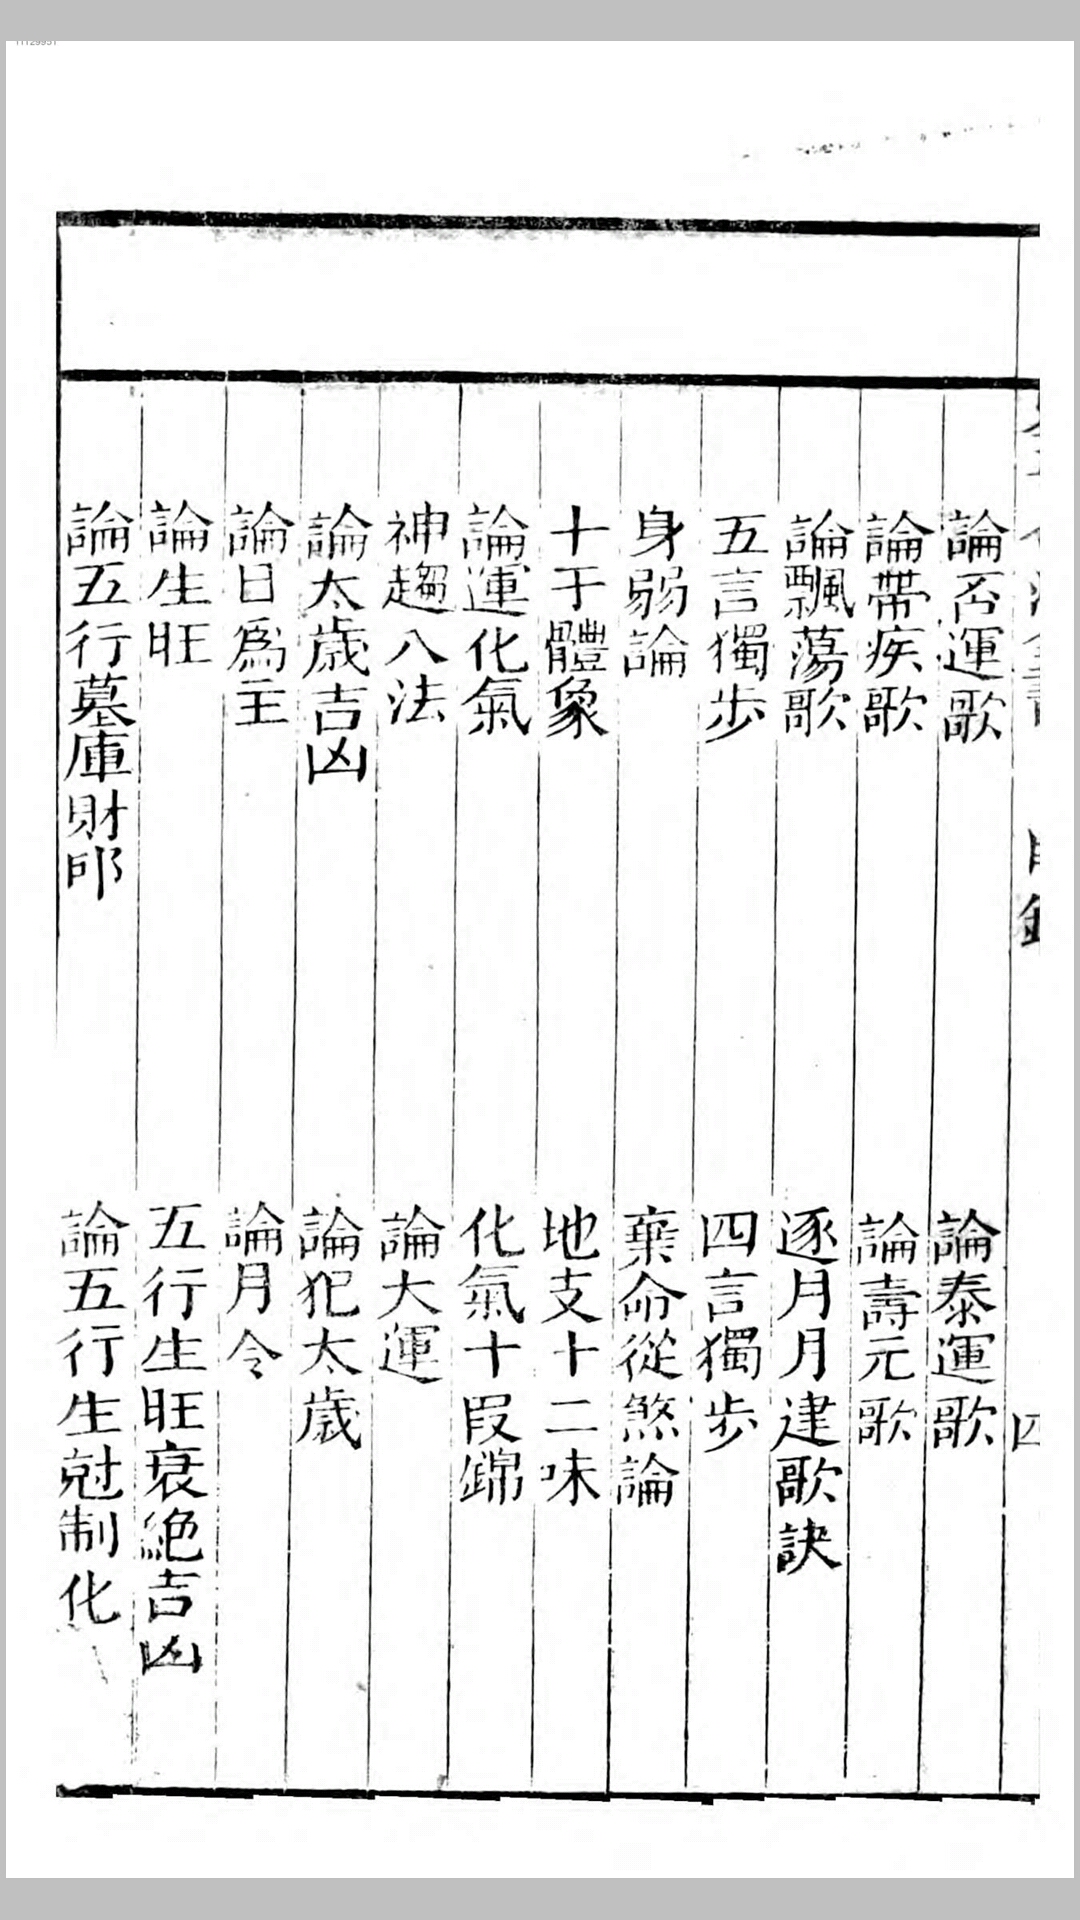 目錄
四
論否運歌
論泰運歌
論帶疾歌
論壽元歌
論飄蕩歌
逐月月建歌訣
五言獨步
四言獨步
身弱論
棄命從煞論
十干體象
地支十二味
論運化氣
化氣十叚錦
神趨八法
論大運
論太歲吉凶
論犯太歲
論日爲主
論月令
論生旺
五行生旺衰絕吉凶
論五行墓庫財印
論五行生尅制化